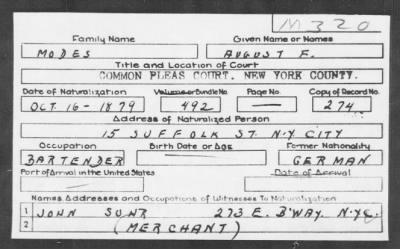 M 320
Family Name Given Name or Names
MODES AUGUST F.
Title and Location of Court
COMMON PLEAS COURT. NEW YORK COUNTY.
Date of Naturalization Volume or Bundle No. Page No. Copy of Record No.
OCT 16-1879 492 — 274
Address of Naturalized Person
15 SUFFOLK ST. N.Y CITY
Occupation Birth Date or Age Former Nationality
BARTENDER GERMAN
Port of Arrival in the United States Date of Arrival
Names, Addresses and Occupations of Witnesses To Naturalization
1 JOHN 273 E. B'WAY. N.Y.C.
2 (MERCHANT)